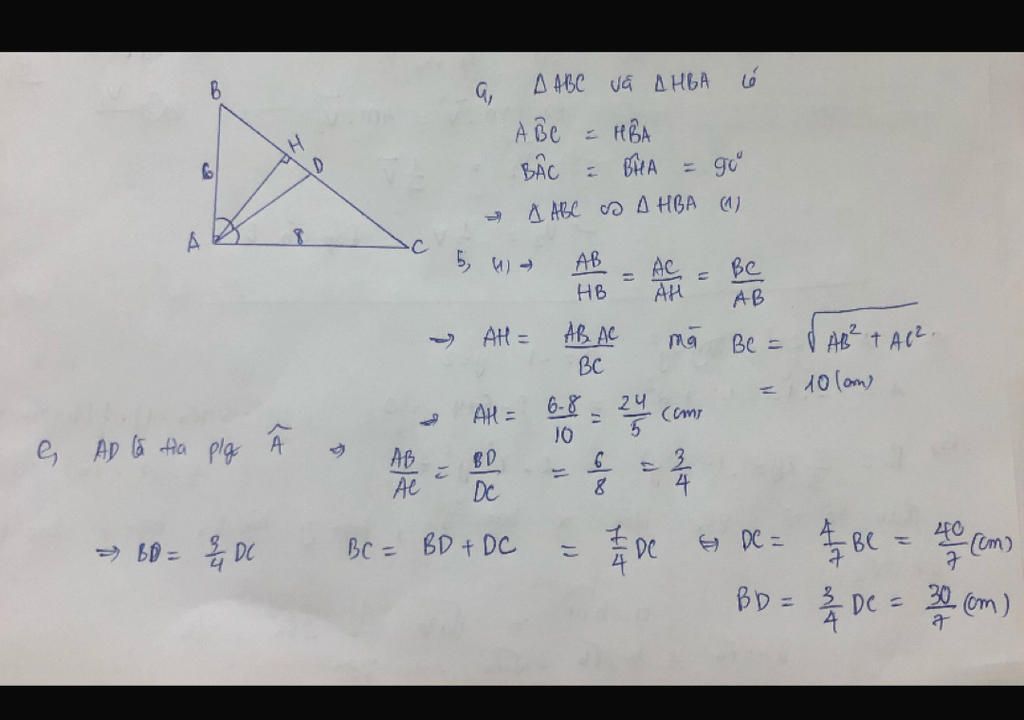 B
H
D
6
A
8
C
a, ΔABC và ΔHBA có
AB̂C = HB̂A
BÂC = BĤA = 90°
→ ΔABC ∽ ΔHBA (1)
b, (1) → AB/HB = AC/AH = BC/AB
→ AH = AB.AC/BC mà BC = √(AB² + AC²)
= 10 (cm)
→ AH = 6.8/10 = 24/5 (cm)
c, AD là tia p/g Â ⇒ AB/AC = BD/DC = 6/8 = 3/4
⇒ BD = 3/4 DC BC = BD + DC = 7/4 DC ⇔ DC = 4/7 BC = 40/7 (cm)
BD = 3/4 DC = 30/7 (cm)